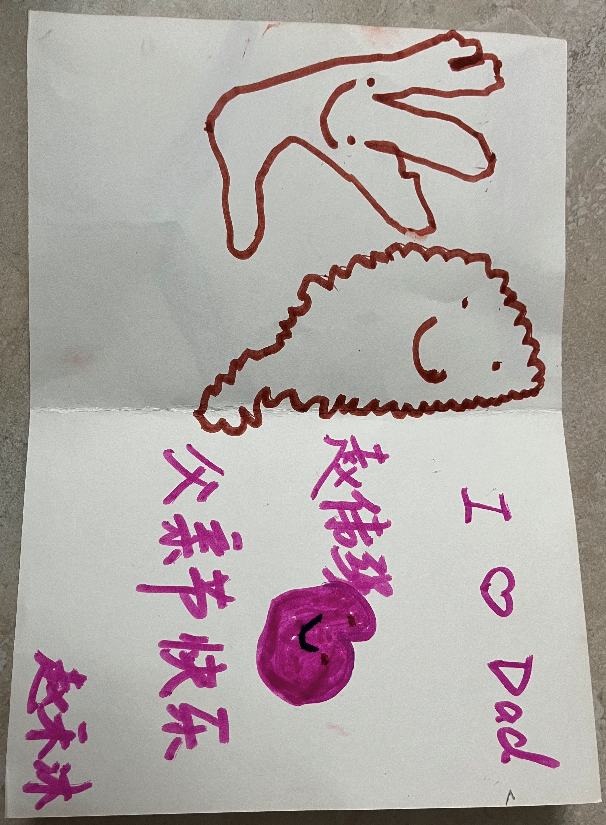 I ♡ Dad
赵伟
父亲节快乐
赵